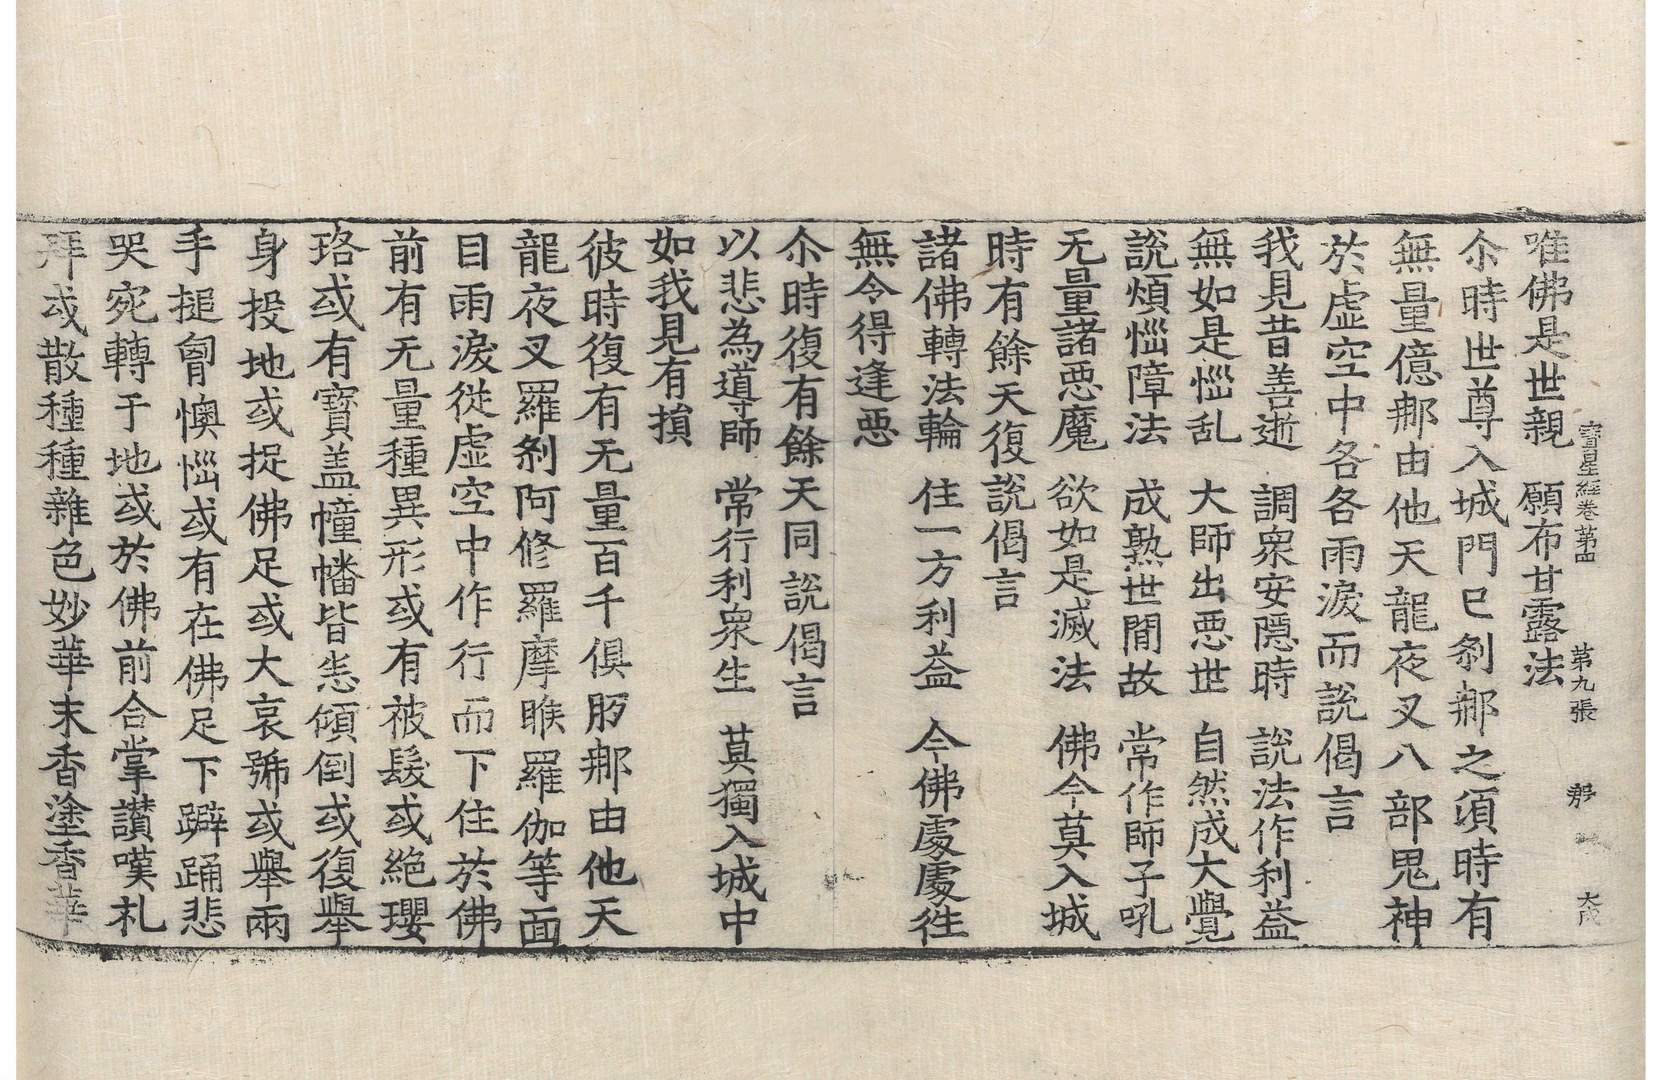 寶星經卷第四 第九張 大成
唯佛是世親 願布甘露法
尒時世尊入城門已剎𨚗之頃時有
無量億𨚗由他天龍夜叉八部鬼神
於虛空中各各雨淚而說偈言
我見昔善逝 調衆安隱時 說法作利益
無如是惱乱 大師出惡世 自然成大覺
說煩惱障法 成熟世閒故 常作師子吼
无量諸惡魔 欲如是滅法 佛今莫入城
時有餘天復說偈言
諸佛轉法輪 住一方利益 今佛處處徃
無令得逢惡
尒時復有餘天同說偈言
以悲為導師 常行利衆生 莫獨入城中
如我見有損
彼時復有无量百千俱胝𨚗由他天
龍夜叉羅剎阿修羅摩睺羅伽等面
目雨淚從虛空中作行而下住於佛
前有无量種異形或有被髮或絶瓔
珞或有寶盖幢幡皆悉傾倒或復舉
身投地或捉佛足或大哀號或舉兩
手搥胷懊惱或有在佛足下躃踊悲
哭宛轉于地或於佛前合掌讃嘆礼
拜或散種種雜色妙華末香塗香華